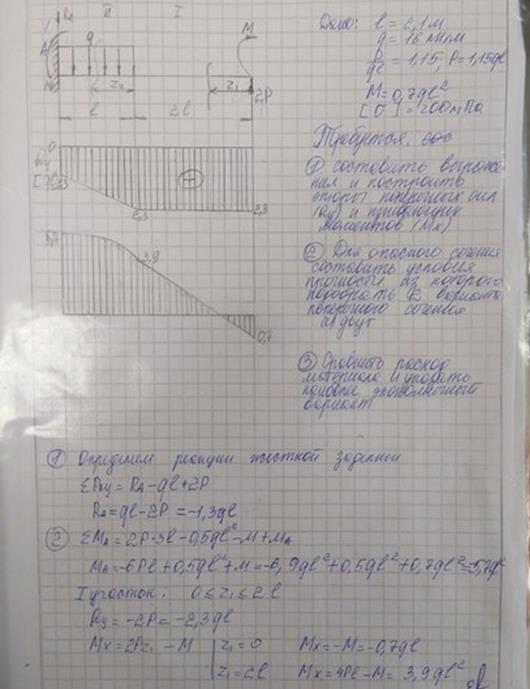 RA II I
M
A q
z₂ z₁ 2P
l 2l
0
Qy
[ql] 1,3
2,3 2,3
5,7
3,9
0,7
Дано: l = 2,1м
q = 16 кН/м
P/ql = 1,15, P = 1,15ql
M = 0,7ql²
[σ] = 200мПа
Требуется.
① составить выраже
ния и построить
эпюры поперечных сил
(Qy) и изгибающих
моментов (Mx)
② Для опасного сечения
составить условия
прочности из которого
подобрать варианта
поперечного сечения
③ Сравнить расход
материала и указать
наиболее экономичный
вариант
① Определяем реакции жесткой заделки
ΣPку = RA - ql + 2P
RA = ql - 2P = -1,3ql
② ΣMA = 2P·3l - 0,5ql² - M + MA
MA = -6Pl + 0,5ql² + M = -6,9ql² + 0,5ql² + 0,7ql² = -5,7ql²
I участок: 0 ≤ z₁ ≤ 2l
Qy = -2P = -2,3ql
Mx = 2Pz₁ - M | z₁ = 0 Mx = -M = -0,7ql
z₁ = 2l Mx = 4Pl - M = 3,9ql²